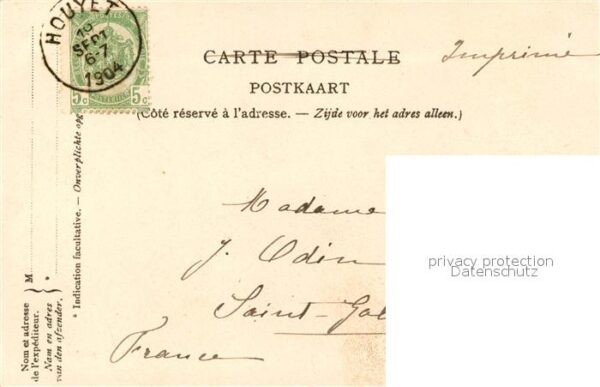 HOUYET
10
SEPT
6-7
1904
5c 5c
CARTE POSTALE
Imprimé
POSTKAART
(Côté réservé à l'adresse. — Zijde voor het adres alleen.)
Madame
J. Odin
Saint-Gal
France
privacy protection
Datenschutz
* Indication facultative. — Onverplichte opg
M
*
Nom et adresse
de l'expéditeur.
Naam en adres
van den afzender.